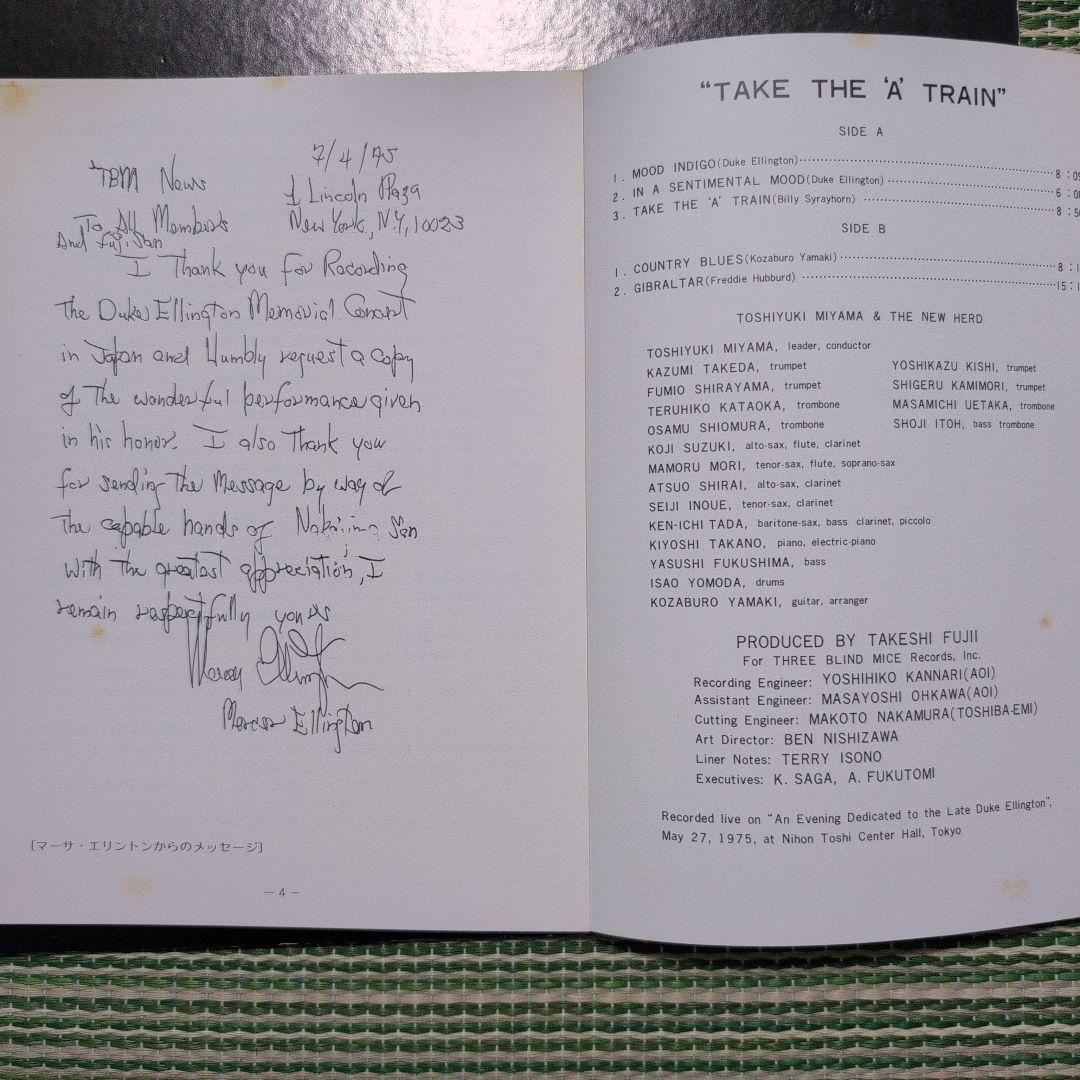 7/4/75
TBM News
1 Lincoln Plaza
To All Members
New York, N.Y, 10023
And Fuji San
I Thank you for Recording
the Duke Ellington Memorial Concert
in Japan and Humbly request a copy
of The wonderful performance given
in his honor. I also Thank you
for sending The Message by way of
The capable hands of Nakajima San
With The greatest appreciation, I
remain respectfully yours
Mercer Ellington
Mercer Ellington
[マーサ・エリントンからのメッセージ]
— 4 —
“TAKE THE ‘A’ TRAIN”
SIDE A
1. MOOD INDIGO(Duke Ellington)
2. IN A SENTIMENTAL MOOD(Duke Ellington)
3. TAKE THE ‘A’ TRAIN(Billy Syrayhorn)
SIDE B
1. COUNTRY BLUES(Kozaburo Yamaki)
2. GIBRALTAR(Freddie Hubburd)
TOSHIYUKI MIYAMA & THE NEW HERD
TOSHIYUKI MIYAMA, leader, conductor
KAZUMI TAKEDA, trumpet
YOSHIKAZU KISHI, trumpet
FUMIO SHIRAYAMA, trumpet
SHIGERU KAMIMORI, trumpet
TERUHIKO KATAOKA, trombone
MASAMICHI UETAKA, trombone
OSAMU SHIOMURA, trombone
SHOJI ITOH, bass trombone
KOJI SUZUKI, alto-sax, flute, clarinet
MAMORU MORI, tenor-sax, flute, soprano-sax
ATSUO SHIRAI, alto-sax, clarinet
SEIJI INOUE, tenor-sax, clarinet
KEN-ICHI TADA, baritone-sax, bass clarinet, piccolo
KIYOSHI TAKANO, piano, electric-piano
YASUSHI FUKUSHIMA, bass
ISAO YOMODA, drums
KOZABURO YAMAKI, guitar, arranger
PRODUCED BY TAKESHI FUJII
For THREE BLIND MICE Records, Inc.
Recording Engineer: YOSHIHIKO KANNARI(AOI)
Assistant Engineer: MASAYOSHI OHKAWA(AOI)
Cutting Engineer: MAKOTO NAKAMURA(TOSHIBA-EMI)
Art Director: BEN NISHIZAWA
Liner Notes: TERRY ISONO
Executives: K. SAGA, A. FUKUTOMI
Recorded live on “An Evening Dedicated to the Late Duke Ellington”,
May 27, 1975, at Nihon Toshi Center Hall, Tokyo